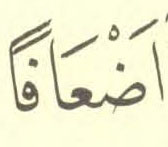 اَضْعَافًا